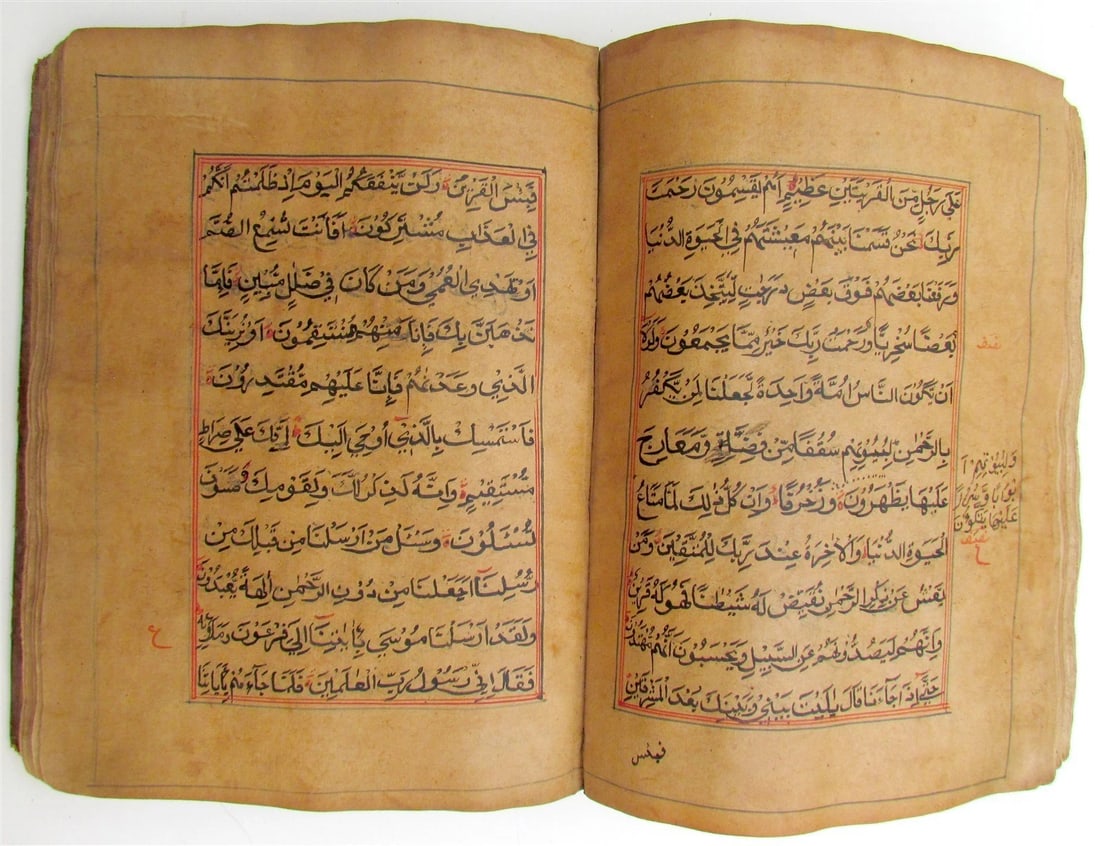 على رجل من القريتين عظيم اهم يقسمون رحمت
ربك نحن قسمنا بينهم معيشتهم في الحيوة الدنيا
ورفعنا بعضهم فوق بعض درجت ليتخذ بعضهم
بعضا سخريا ورحمت ربك خير مما يجمعون ولولا
ان يكون الناس امة واحدة لجعلنا لمن يكفر
بالرحمن لبيوتهم سقفا من فضة ومعارج
عليها يظهرون وزخرفا وان كل ذلك لما متاع
الحيوة الدنيا والاخرة عند ربك للمتقين ومن
يعش عن ذكر الرحمن نقيض له شيطنا فهو له قرين
وانهم ليصدونهم عن السبيل ويحسبون انهم مهتدون
حتى اذا جاءنا قال يليت بيني وبينك بعد المشرقين
ولبيوتهم ا
بوابا وسررا
عليها يتكؤن
ع
فبئس
فبئس القرين ولن ينفعكم اليوم اذ ظلمتم انكم
في العذاب مشتركون افانت تسمع الصم
او تهدي العمي ومن كان في ضلل مبين فاما
نذهبن بك فانا منهم منتقمون او نرينك
الذي وعدنهم فانا عليهم مقتدرون
فاستمسك بالذي اوحي اليك انك على صراط
مستقيم وانه لذكر لك ولقومك وسوف
تسئلون وسئل من ارسلنا من قبلك من
رسلنا اجعلنا من دون الرحمن الهة يعبدون
ولقد ارسلنا موسى بايتنا الى فرعون وملائه
فقال اني رسول رب العلمين فلما جاءهم باياتنا
ع